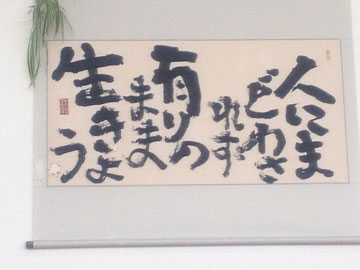 人にま
どわさ
れず
有りの
まま
生きよ
う